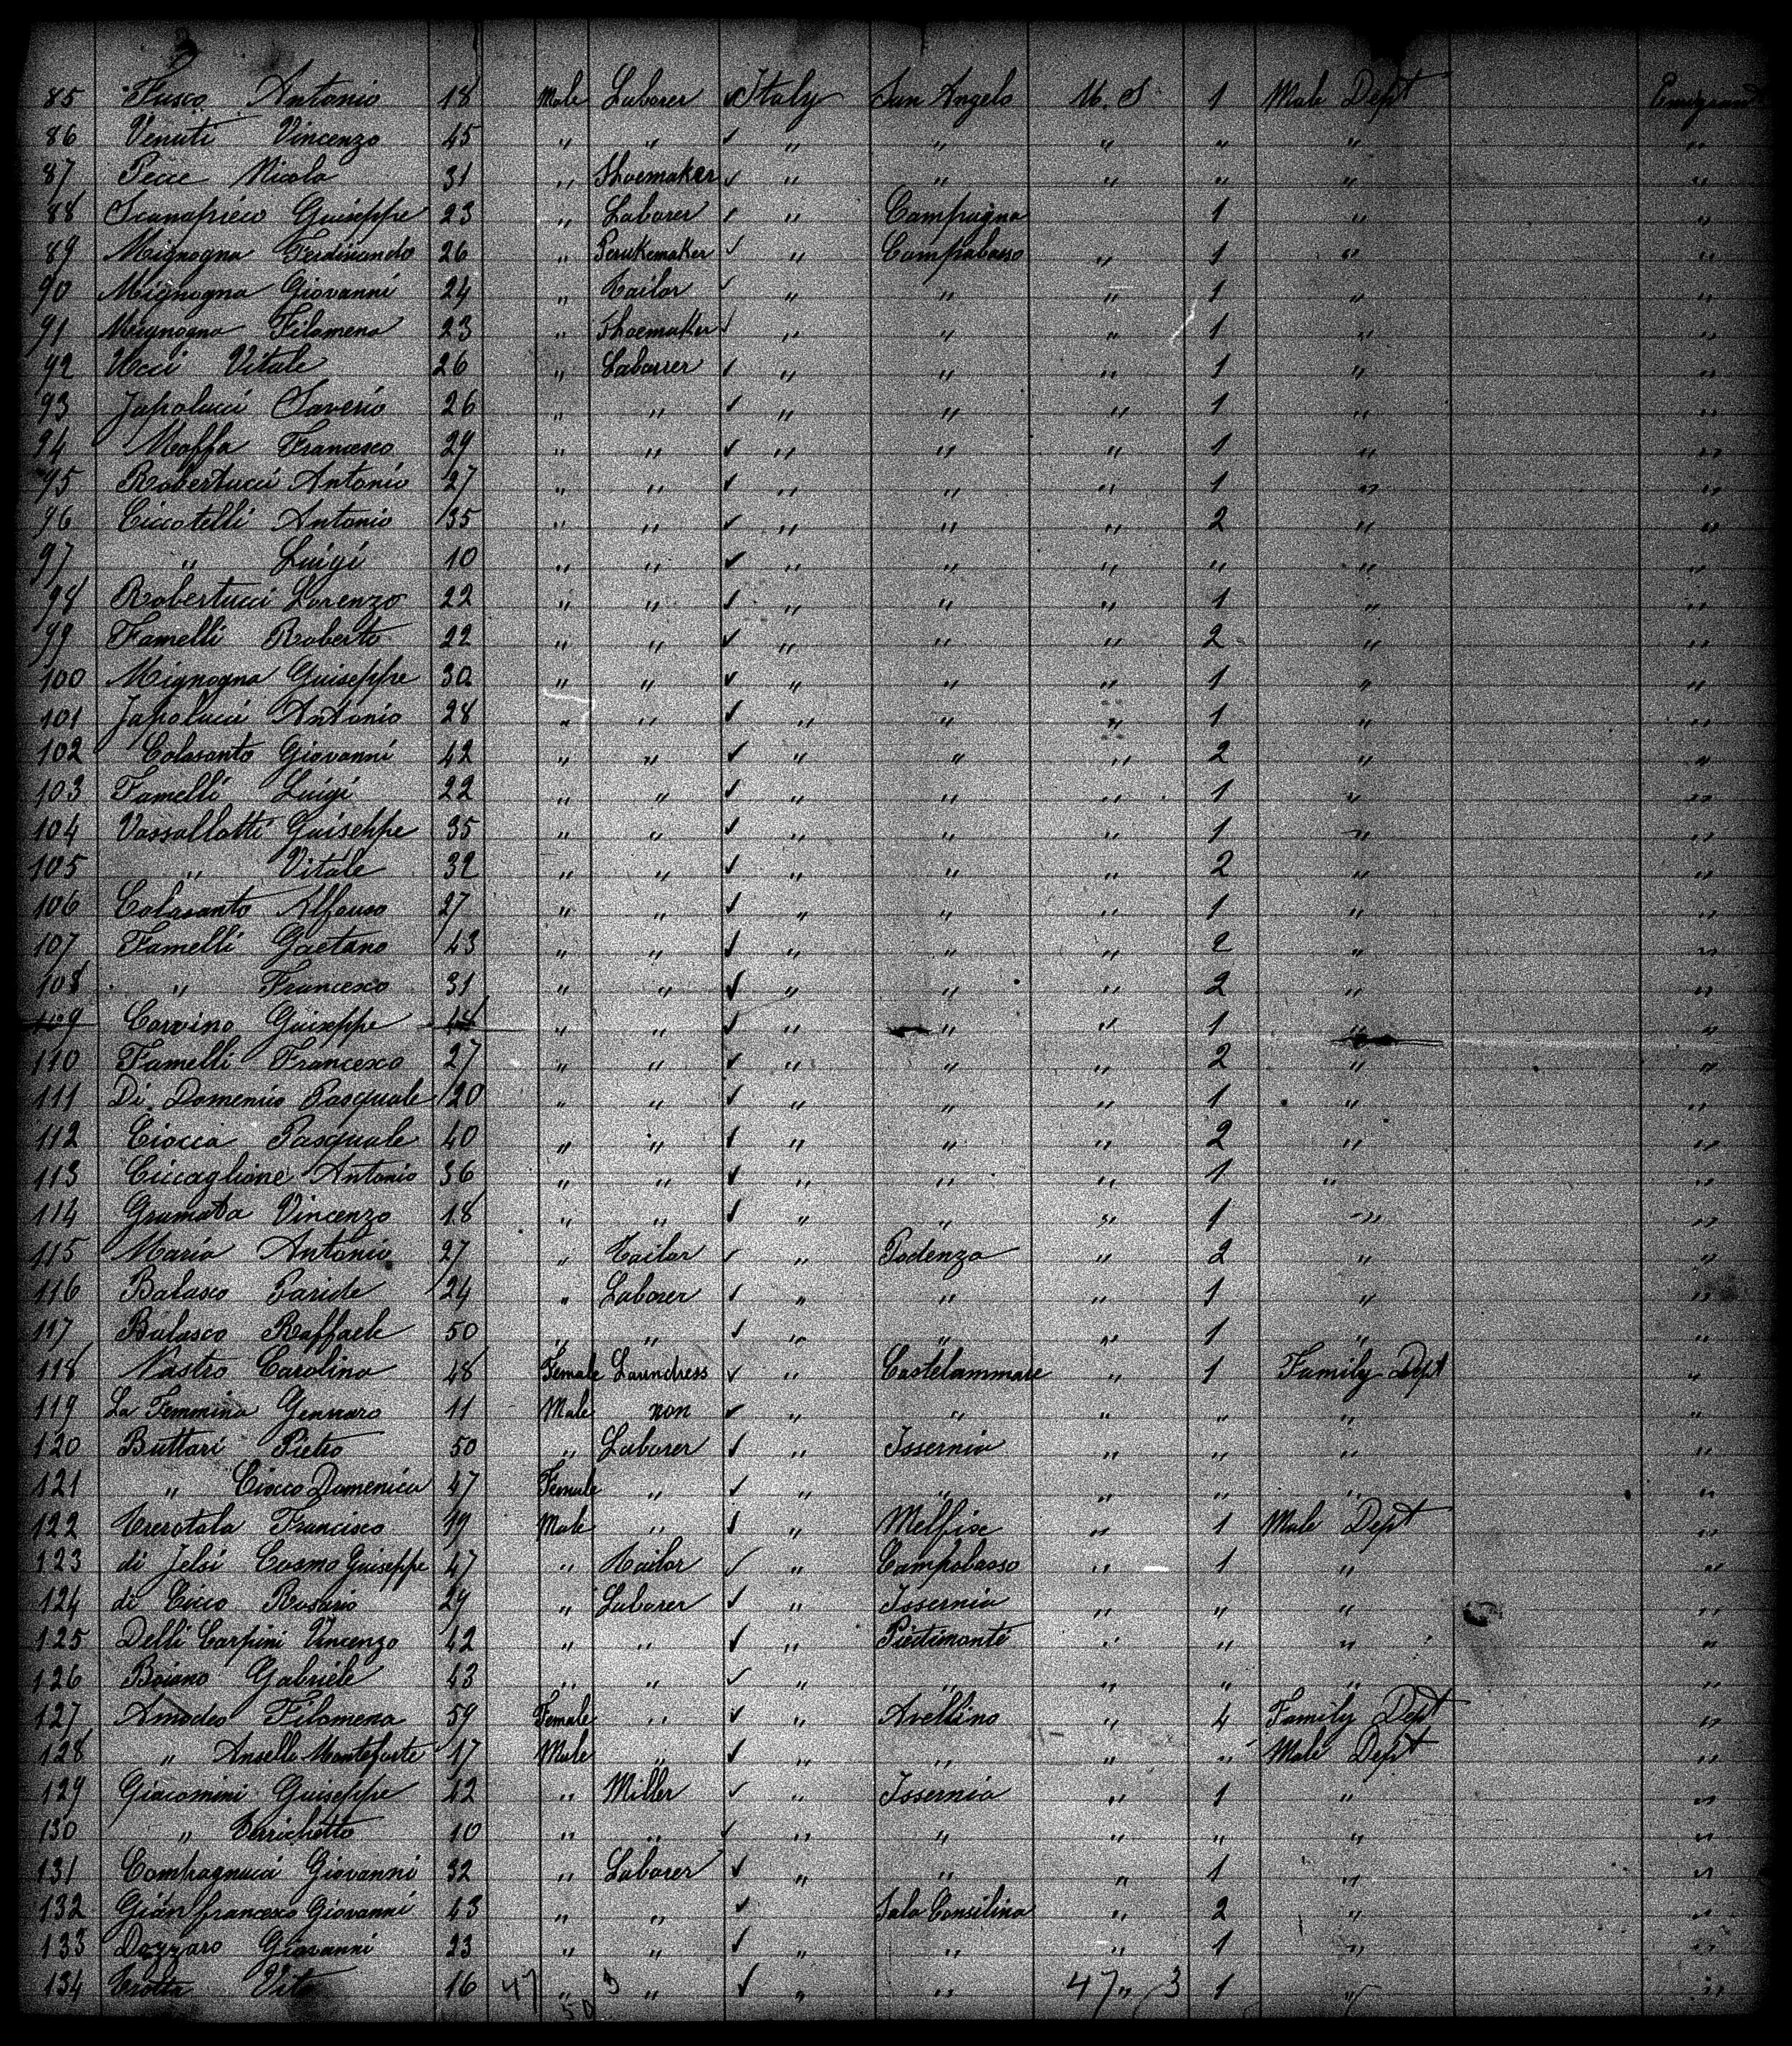 85 Fusco Antonio 18 Male Laborer ✓ Italy San Angelo U. S. 1 Male Dept Emigrant
86 Venuti Vincenzo 45 " " ✓ " " " " " "
87 Pecce Nicola 31 " Shoemaker ✓ " " " " " "
88 Scanapieco Guiseppe 23 " Laborer ✓ " Campagna 1 " "
89 Mignogna Ferdinando 26 " Perukemaker ✓ " Campobasso " 1 " "
90 Mignogna Giovanni 24 " Tailor ✓ " " " 1 " "
91 Mignogna Filomena 23 " Shoemaker ✓ " " " 1 " "
92 Ucci Vitale 26 " Laborer ✓ " " " 1 " "
93 Japalucci Saverio 26 " " ✓ " " " 1 " "
94 Maffa Francesco 29 " " ✓ " " " 1 " "
95 Robertucci Antonio 27 " " ✓ " " " 1 " "
96 Ciccotelli Antonio 35 " " ✓ " " " 2 " "
97 " Luigi 10 " " ✓ " " " " " "
98 Robertucci Lorenzo 22 " " ✓ " " " 1 " "
99 Famelli Roberto 22 " " ✓ " " " 2 " "
100 Mignogna Guiseppe 30 " " ✓ " " " 1 " "
101 Japalucci Antonio 28 " " ✓ " " " 1 " "
102 Colasanto Giovanni 42 " " ✓ " " " 2 " "
103 Famelli Luigi 22 " " ✓ " " " 1 " "
104 Vassallotti Guiseppe 35 " " ✓ " " " 1 " "
105 " Vitale 32 " " ✓ " " " 2 " "
106 Colasanto Alfonso 27 " " ✓ " " " 1 " "
107 Famelli Gaetano 43 " " ✓ " " " 2 " "
108 " Francesco 31 " " ✓ " " " 2 " "
109 Corvino Guiseppe " " ✓ " " " 1 " "
110 Famelli Francesco 27 " " ✓ " " " 2 " "
111 Di Domenico Pasquale 20 " " ✓ " " " 1 " "
112 Ciocca Pasquale 40 " " ✓ " " " 2 " "
113 Ciccaglione Antonio 36 " " ✓ " " " 1 " "
114 Gramata Vincenzo 18 " " ✓ " " " 1 " "
115 Maria Antonio 27 " Tailor ✓ " Podenza " 2 " "
116 Balasco Paride 24 " Laborer ✓ " " " 1 " "
117 Balasco Raffaele 50 " " ✓ " " " 1 " "
118 Nastro Carolina 48 Female Laundress ✓ " Castelammare " 1 Family Dept "
119 La Femmina Gennaro 11 Male non ✓ " " " " " "
120 Buttari Pietro 50 " Laborer ✓ " Issernia " " " "
121 " Ciocco Domenica 47 Female " ✓ " " " " " "
122 Francisco 19 Male " ✓ " Melfise " 1 Male Dept "
123 di Jelsi Cosmo Guiseppe 47 " Tailor ✓ " Campobasso " 1 " "
124 di Cicco Rosario 29 " Laborer ✓ " Issernia " " " "
125 Delli Carpini Vincenzo 42 " " ✓ " Piedimonte " " " "
126 Boiano Gabriele 43 " " ✓ " " " " " "
127 Amodeo Filomena 59 Female " ✓ " Avellino " 4 Family Dept "
128 " Ansello Monteforte 17 Male " ✓ " " " " Male Dept "
129 Giacomini Guiseppe 42 " Miller ✓ " Issernia " 1 " "
130 " Berrichetto 10 " " ✓ " " " " " "
131 Compagnucci Giovanni 32 " Laborer ✓ " " " 1 " "
132 Gianfrancesco Giovanni 43 " " ✓ Sala Consilina " 2 " "
133 Dazzaro Giovanni 23 " " ✓ " " " 1 " "
134 Trotta Vito 16 47 " 3 " ✓ " " 47 " 3 1 " "
50